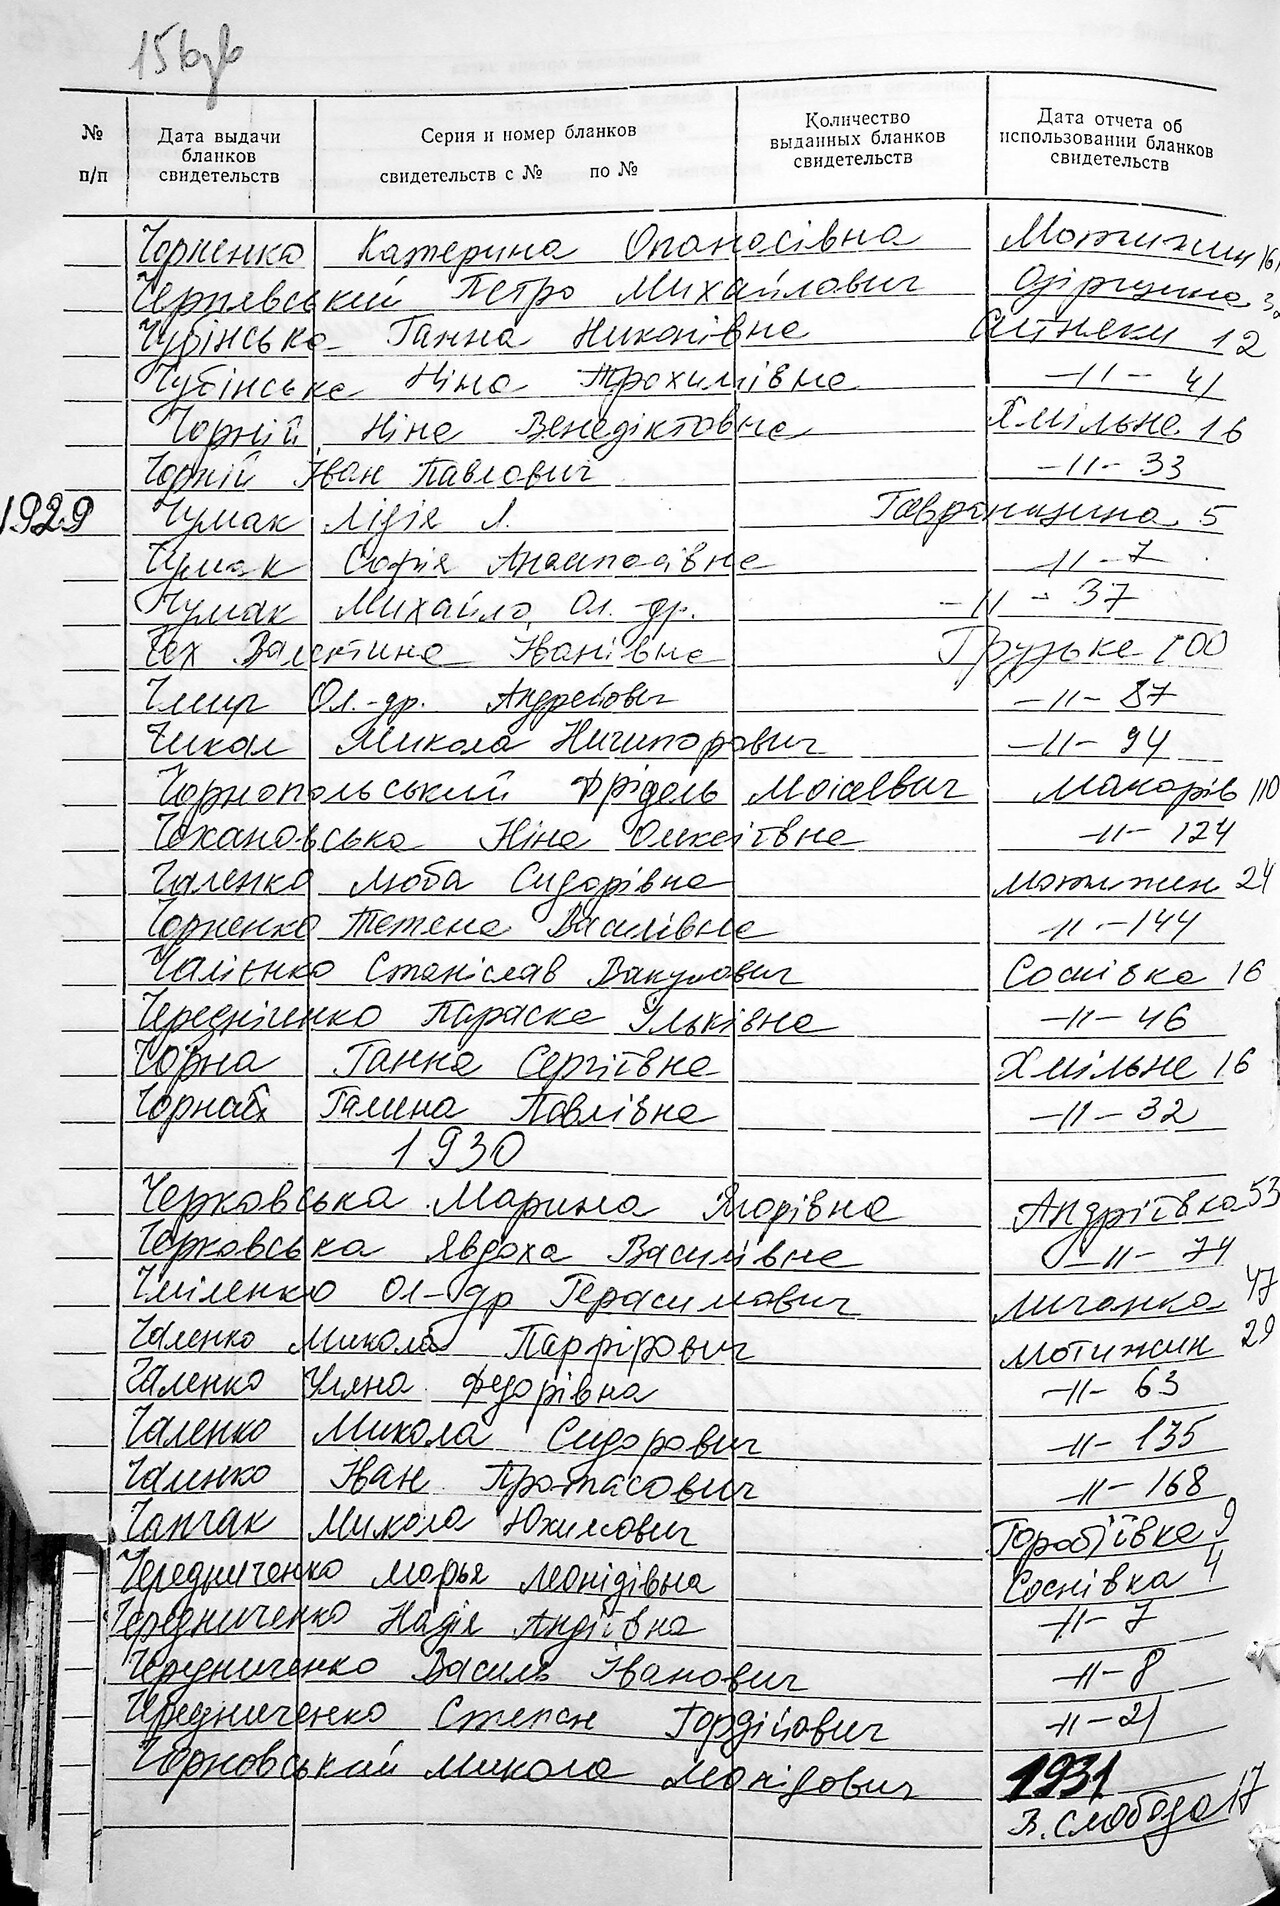 № п/п
Дата выдачи бланков свидетельств
Серия и номер бланков свидетельств с № по №
Количество выданных бланков свидетельств
Дата отчета об использовании бланков свидетельств
Чорненко Катерина Опанасівна Мотижин 161
Чернявський Петро Михайлович
Чубінська Ганна Никонівна 12
Чубінська Ніна Трохимівна -11- 41
Чорній Ніна Венедіктовна Хмільна 16
Чорній Іван Павлович -11- 33
1929 Чумак Лідія Л. Гавронщина 5
Чумак Софія -11- 7
Чумак Михайло Ол.-др. -11- 37
Чех Валентина Іванівна Грузьке 100
Чмир Ол.-др. Андрейович -11- 87
Чикал Микола Ничипорович -11- 94
Чорнопольський Фрідель Моісевич Макарів 110
Чехановська Ніна Олексіївна -11- 124
Чаленко Люба Сидорівна Мотижин 24
Чорненко Тетяна Василівна -11- 144
Чалієнко Станіслав Вакулович Соснівка 16
Чередніченко Параска Ільківна -11- 46
Чорна Ганна Сергіївна Хмільна 16
Чорней Галина Павлівна -11- 32
1930
Черковська Марина Ягорівна Андріївка 53
Черковська Явдоха Василівна -11- 74
Чміленко Ол-др Герасимович Личанка 47
Чаленко Микола Парфірович Мотижин 29
Чаленко Уляна Федорівна -11- 63
Чаленко Микола Сидорович -11- 135
Чаленко Іван Протасович -11- 168
Чапчак Микола Юхимович Горобіївка 9
Чередниченко Марья Леонідівна Соснівка 4
Чередниченко Надія Андіївна -11- 7
Чередниченко Василь Іванович -11- 8
Чередниченко Степан Гордійович -11- 21
Чорновський Микола Леонідович 1931
В. Слобода 17